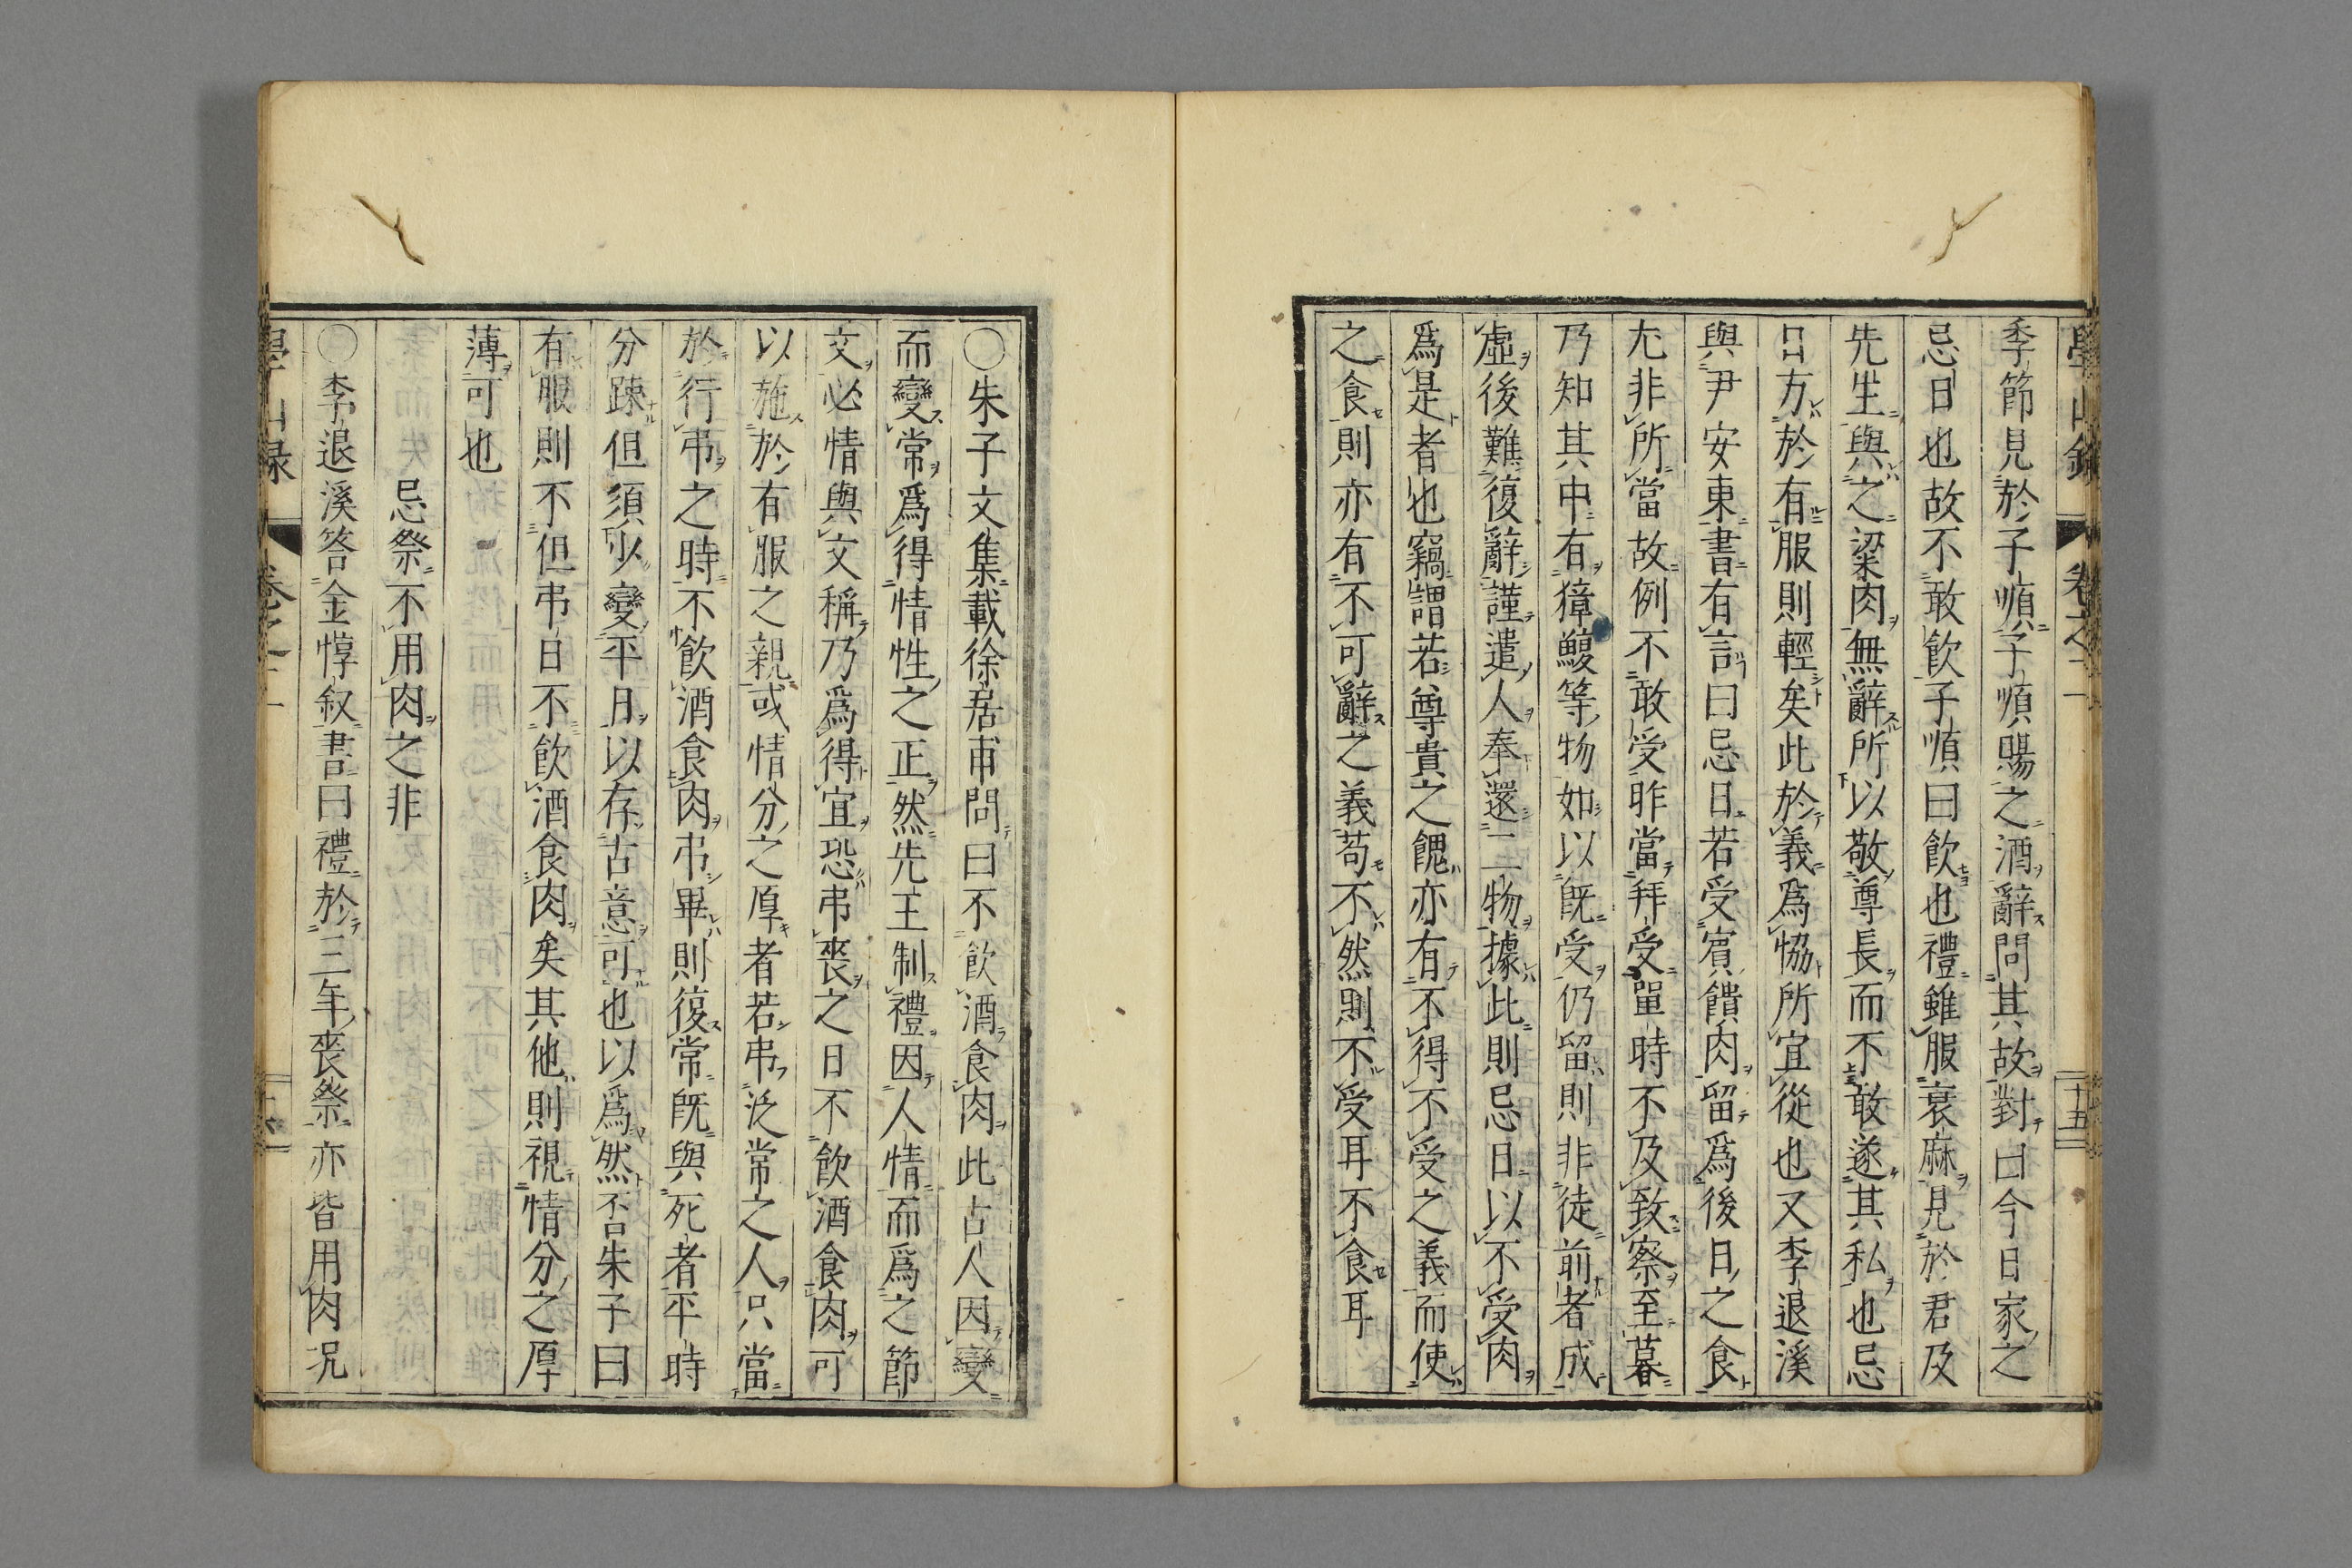 學山録 卷之二 十五
季節見於子順子順賜之酒辭問其故對曰今日家之
忌日也故不敢飲子順曰飲也禮雖服衰麻見於君及
先生與之粱肉無辭所以敬尊長而不敢遂其私也忌
日方於有服則輕矣此於義爲恊所宜從也又李退溪
與尹安東書有言曰忌日若受賓饋肉留爲後日之食
尤非所當故例不敢受昨當拜受單時不及致察至暮
乃知其中有獐鰒等物如以既受仍留則非徒前者成
虛後難復辭謹遣人奉還二物據此則忌日以不受肉
爲是者也竊謂若尊貴之餽亦有不得不受之義而使
之食則亦有不可辭之義苟不然則不受耳不食耳
〇朱子文集載徐居甫問曰不飲酒食肉此古人因變
而變常爲得情性之正然先王制禮因人情而爲之節
文必情與文稱乃爲得宜恐弔喪之日不飲酒食肉可
以施於有服之親或情分之厚者若弔泛常之人只當
於行弔之時不飲酒食肉弔畢則復常既與死者平時
分踈但須少變平日以存古意可也以爲然否朱子曰
有服則不但弔日不飲酒食肉矣其他則視情分之厚
薄可也
忌祭不用肉之非
〇李退溪答金惇叙書曰禮於三年喪祭亦皆用肉况
學山録 卷之二